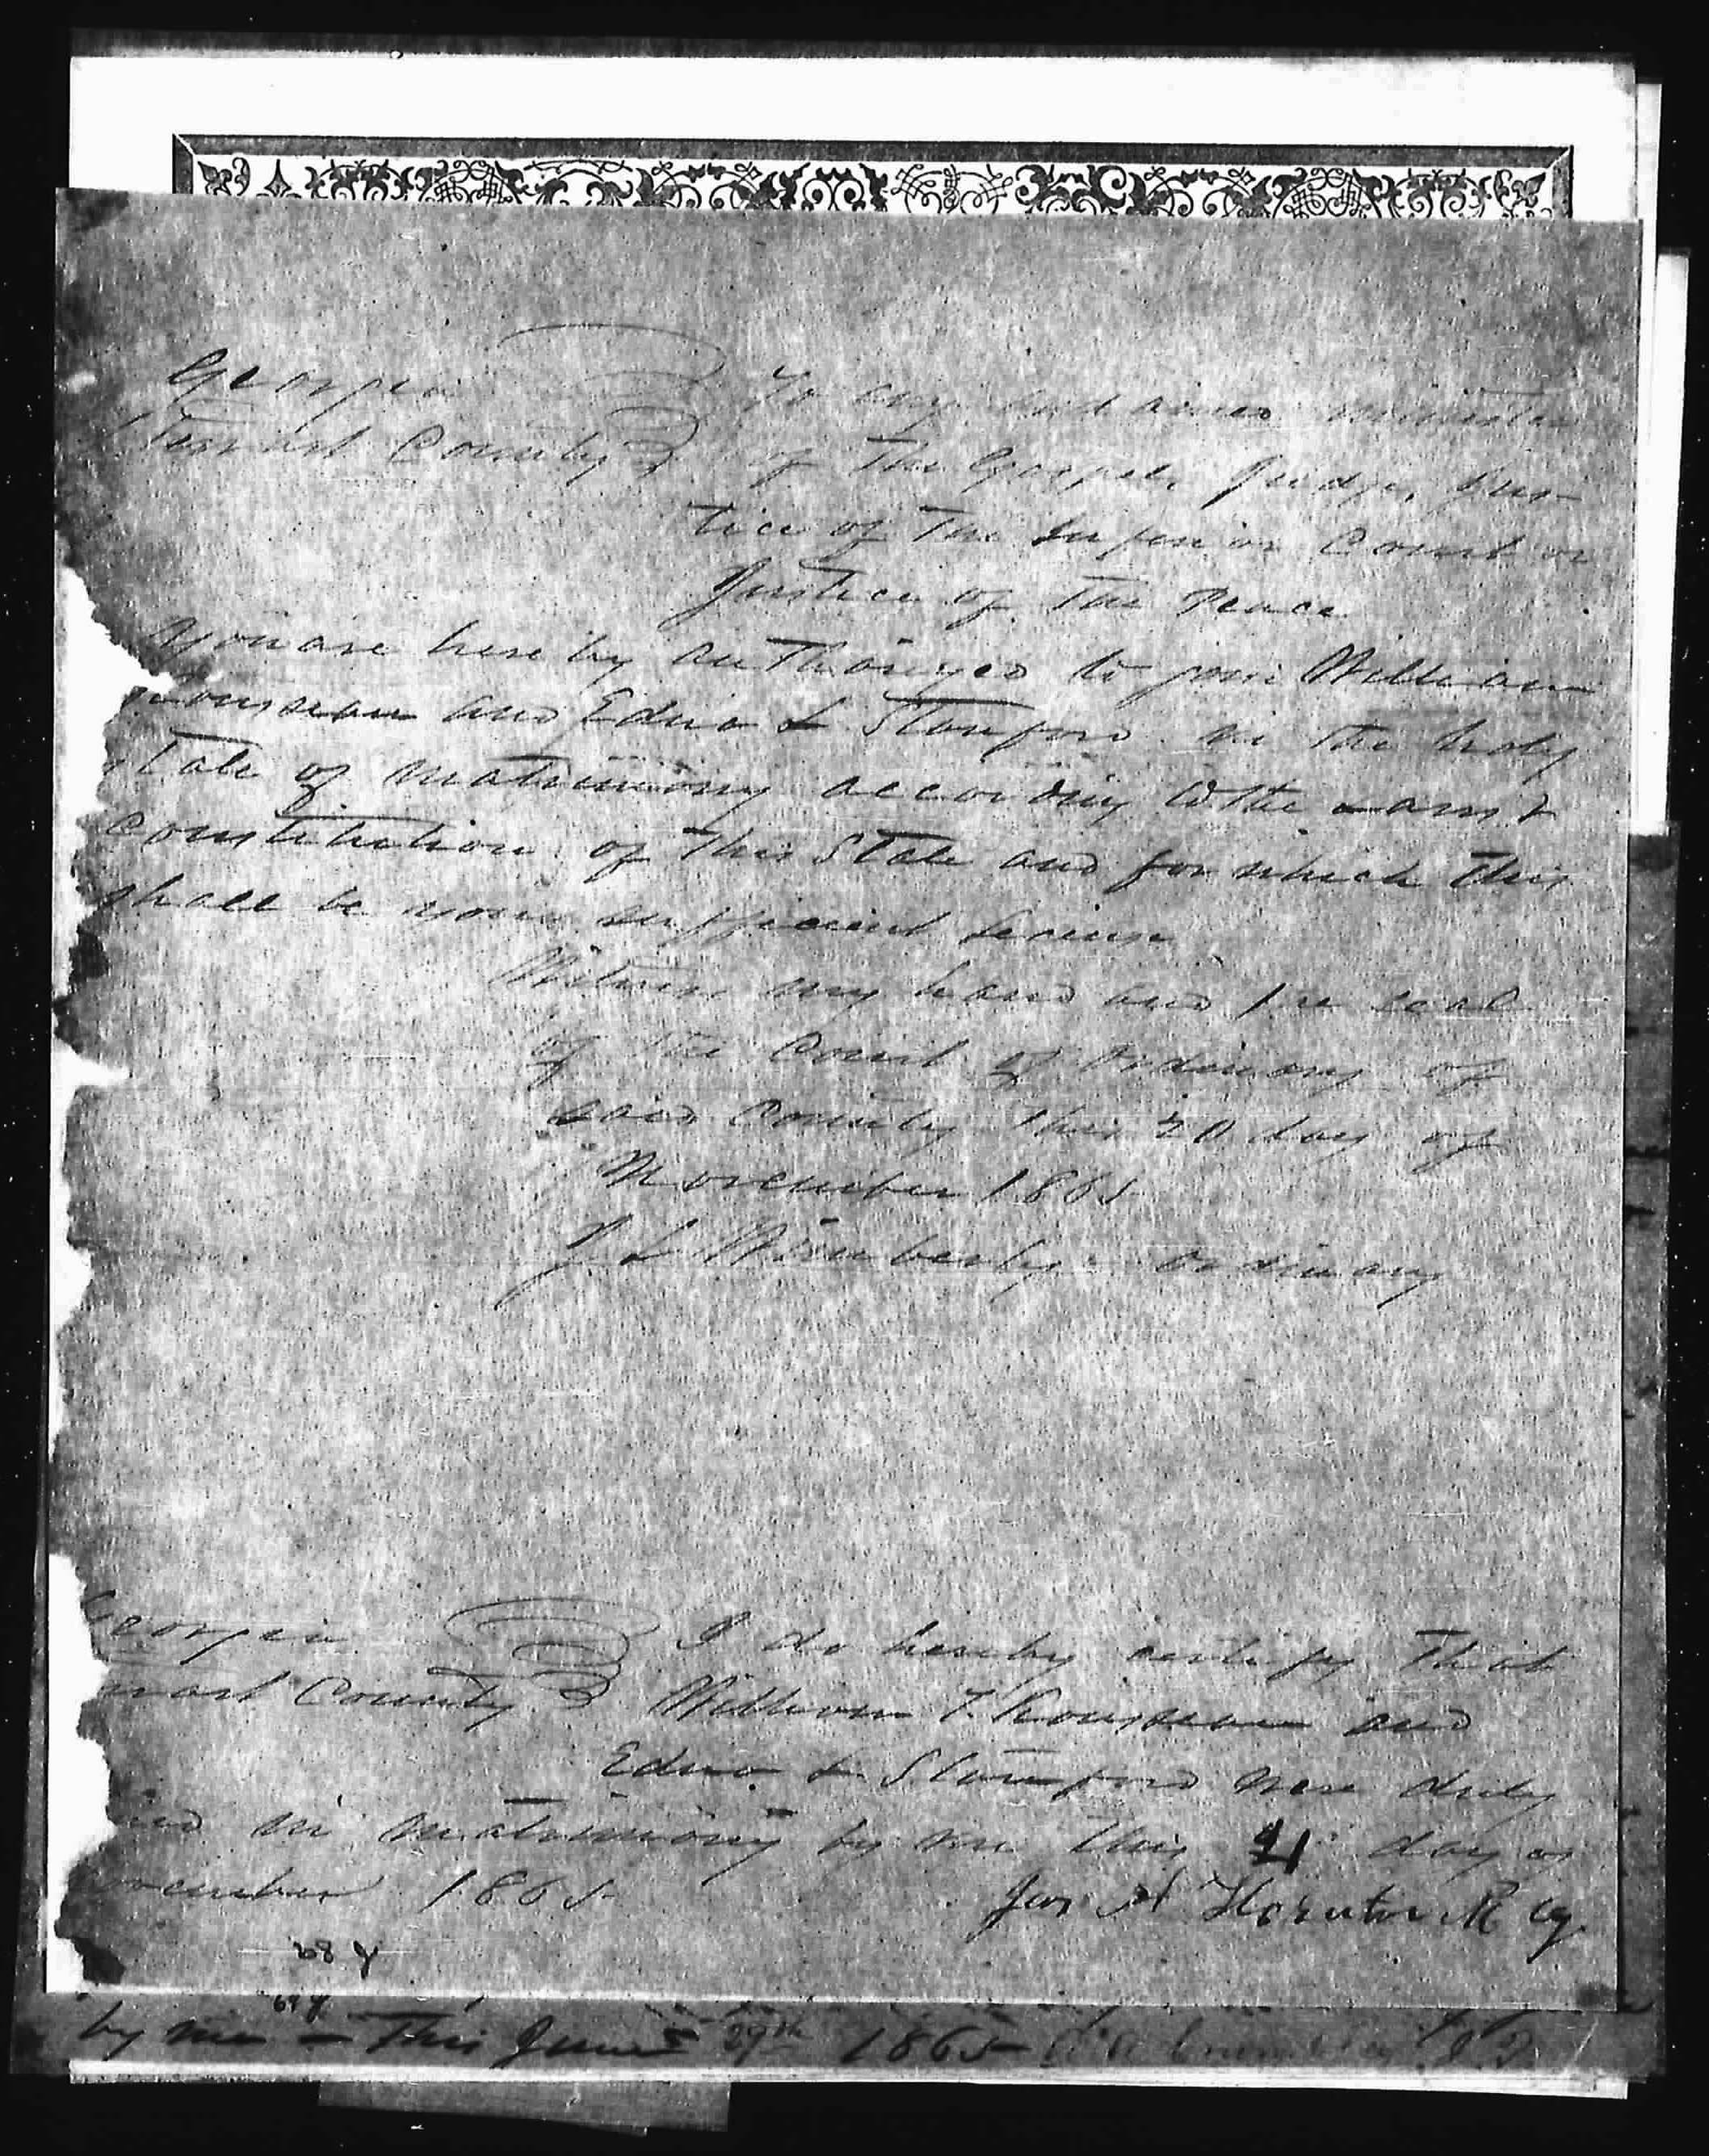 Georgia To any ordained minister
Stewart County of the Gospel, Judge, Jus-
tice of the Inferior Court or
Justice of the Peace
You are hereby authorized to join William
Rousseau and Edna L Stanford in the holy
State of matrimony according to the Laws &
Constitution of this State and for which this
shall be your sufficient License
Witness my hand and the seal
of the Court of Ordinary of
said County this 20 day of
November 1865
J L Wimberly Ordinary
eorgia I do hereby certify that
wart County William T. Rousseau and
Edna L Stanford were duly
ined in matrimony by me this 21 day of
vember 1865
Jas H Thornton M Cg
68 y
69 y
by me – This June 29th 1865